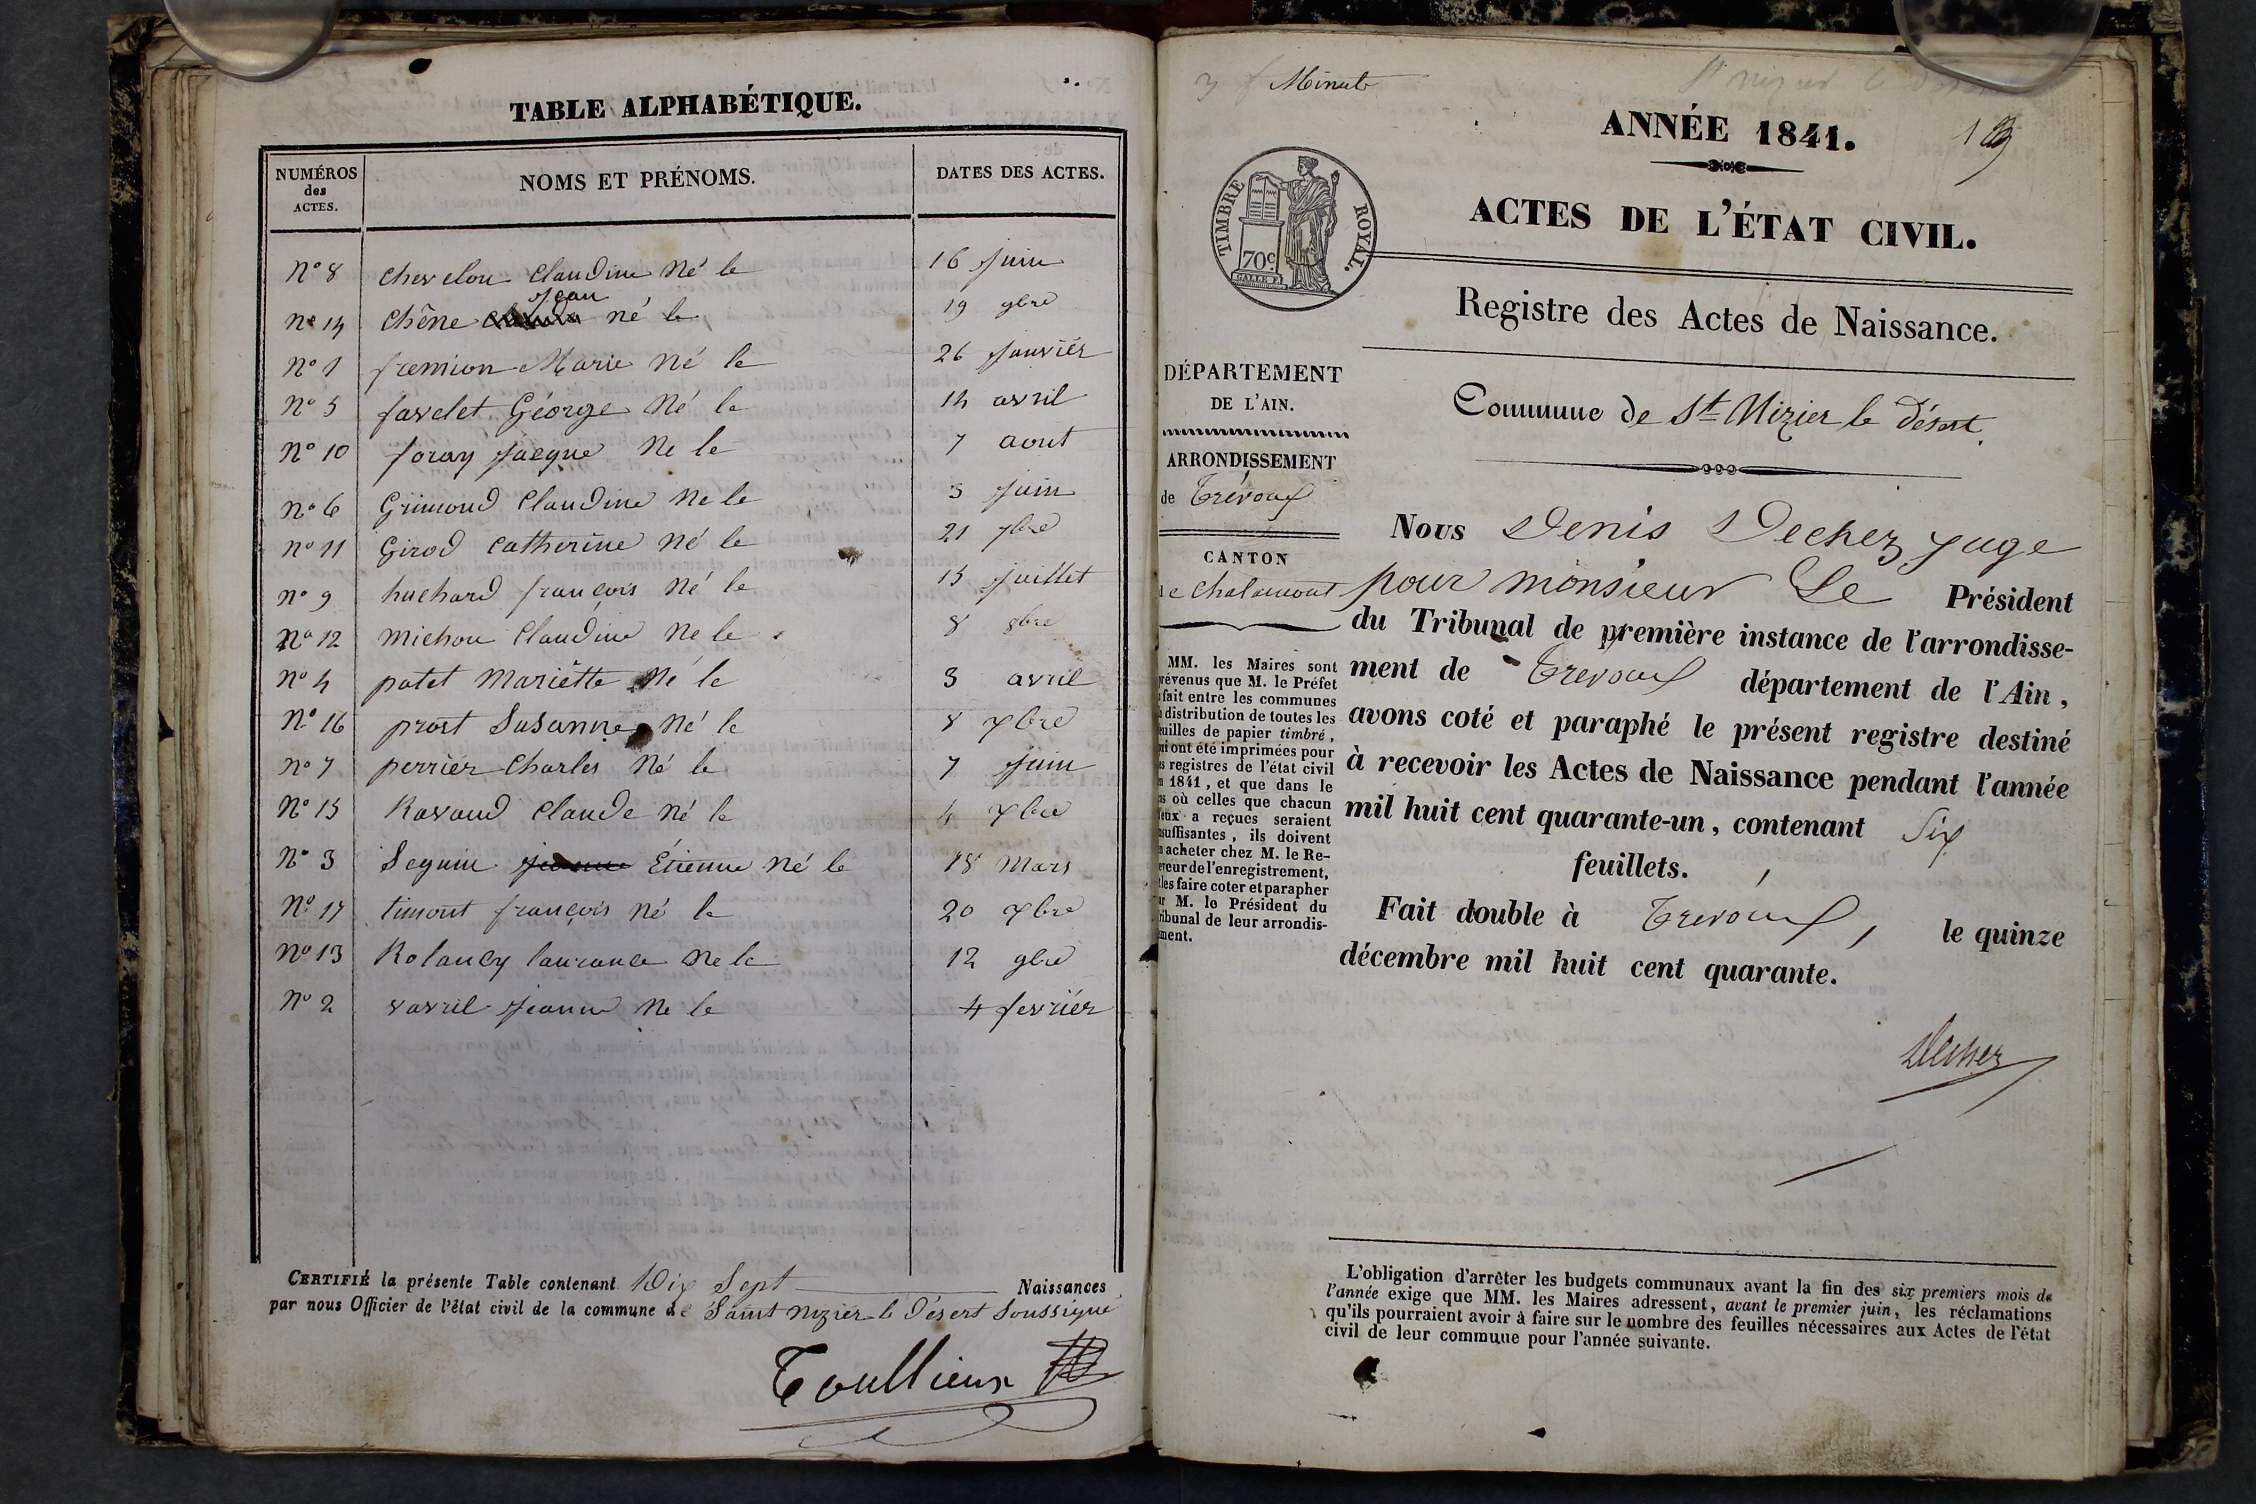 TABLE ALPHABÉTIQUE.
NUMÉROS des ACTES. NOMS ET PRÉNOMS. DATES DES ACTES.
N° 8 chevelon claudine Né le 16 juin
N° 14 chêne Jean né le 19 9bre
N° 1 fremion Marie né le 26 Janvier
N° 5 favelet Géorge Né le 14 avril
N° 10 foray jacque Ne le 7 aout
N° 6 Grimond claudine Ne le 3 juin
N° 11 Girod catherine Né le 21 7bre
N° 9 huchard françois Né le 15 juillet
N° 12 michon claudine Ne le 8 8bre
N° 4 patet mariètte Né le 3 avril
N° 16 prost Susanne Né le 8 xbre
N° 7 perrier charles Né le 7 juin
N° 15 Ravaud claude Né le 4 xbre
N° 3 Seguin Étienne Né le 18 Mars
N° 17 timont françois Né le 20 xbre
N° 13 Rolancy laurance Ne le 12 9bre
N° 2 vavril jeanne Ne le 4 fevriér
CERTIFIÉ la présente Table contenant Dix Sept Naissances
par nous Officier de l'état civil de la commune de Saint Nizier le Désert Soussigné
Toullieux
Minute
ANNÉE 1841.
TIMBRE ROYAL.
70c
ACTES DE L'ÉTAT CIVIL.
Registre des Actes de Naissance.
DÉPARTEMENT
DE L'AIN.
ARRONDISSEMENT
de Trévoux
CANTON
de Chalamont
MM. les Maires sont
prévenus que M. le Préfet
a fait entre les communes
la distribution de toutes les
feuilles de papier timbré,
qui ont été imprimées pour
les registres de l'état civil
en 1841, et que dans le
cas où celles que chacun
d'eux a reçues seraient
insuffisantes, ils doivent
en acheter chez M. le Re-
ceveur de l'enregistrement,
et les faire coter et parapher
par M. le Président du
tribunal de leur arrondis-
sement.
Commune de St Nizier le Désert.
Nous Denis Dechez juge
pour monsieur Le Président
du Tribunal de première instance de l'arrondisse-
ment de Trevoux département de l'Ain,
avons coté et paraphé le présent registre destiné
à recevoir les Actes de Naissance pendant l'année
mil huit cent quarante-un, contenant Six
feuillets.
Fait double à Trevoux, le quinze
décembre mil huit cent quarante.
Dechez
L'obligation d'arrêter les budgets communaux avant la fin des six premiers mois de
l'année exige que MM. les Maires adressent, avant le premier juin, les réclamations
qu'ils pourraient avoir à faire sur le nombre des feuilles nécessaires aux Actes de l'état
civil de leur commune pour l'année suivante.